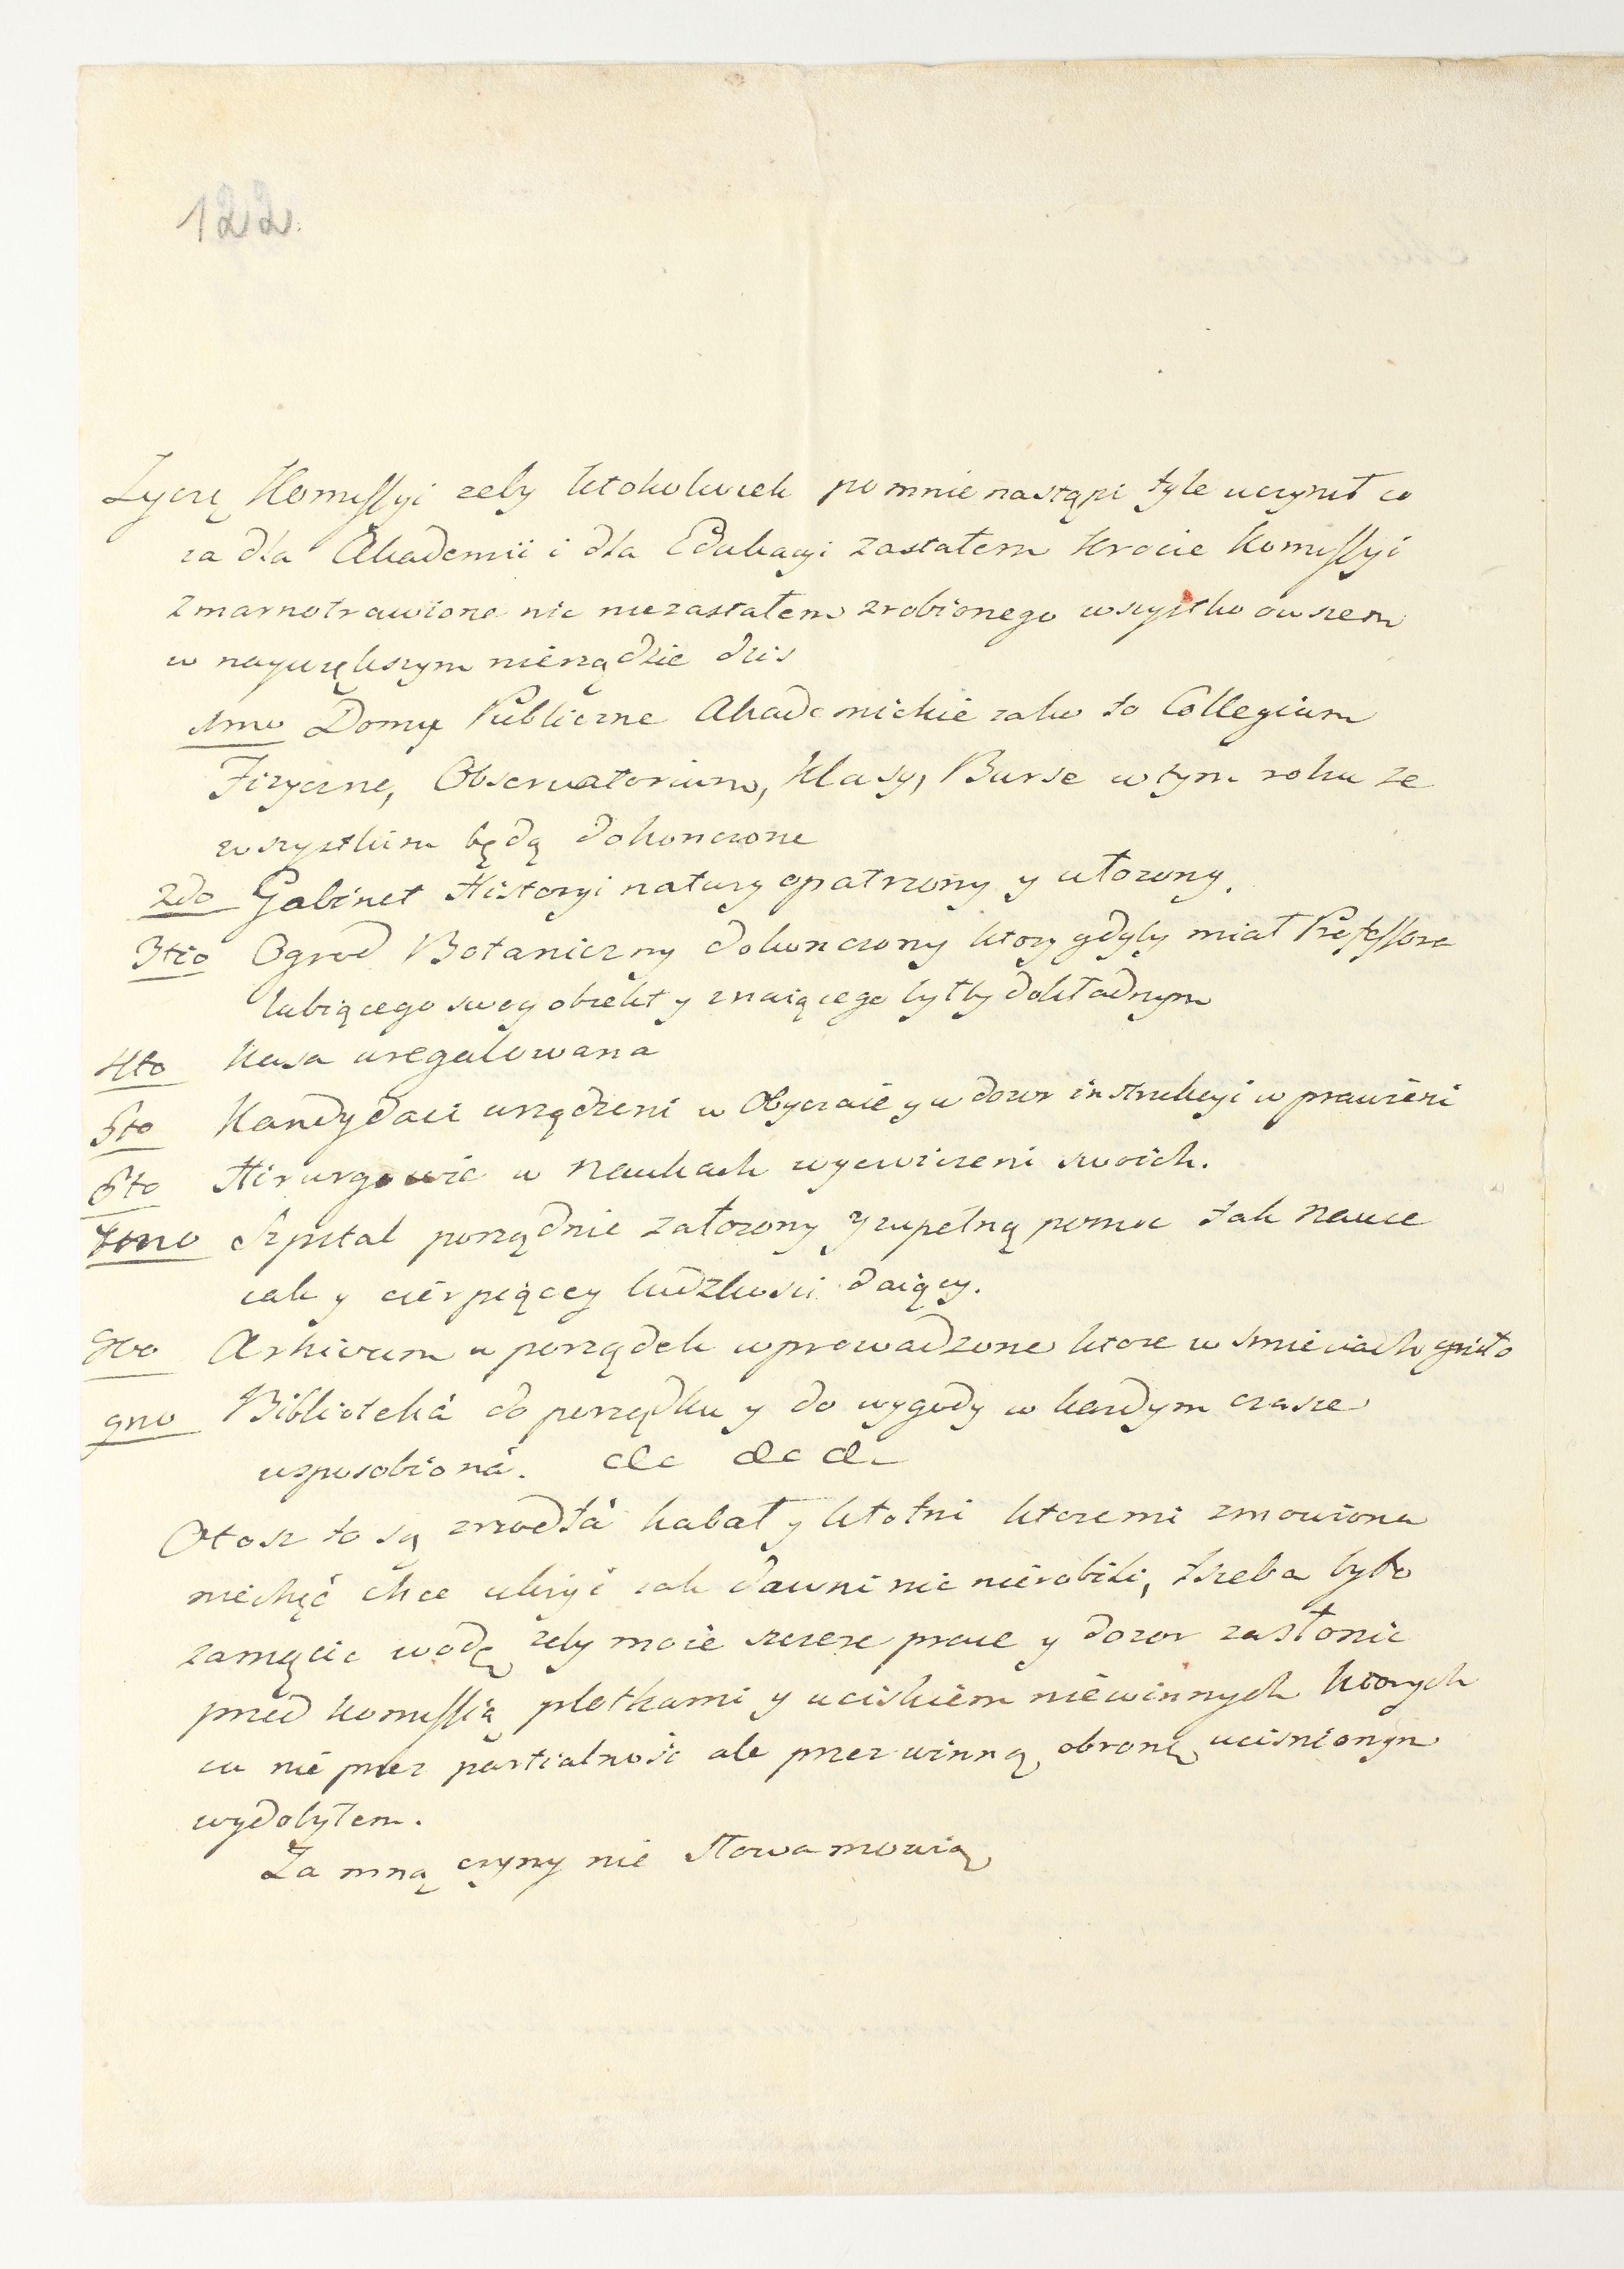 122.
Zyczę Komissyi zeby ktokolwiek po mnie nastąpi tyle uczynił co
ia dla Akademii i dla Edukacyi zastałem krocie Komissyi
zmarnotrawione nic niezastałem zrobionego wszystko owszem
w naywiększym nierządzie dzis
1mo Domy Publiczne Akademickie iako to Collegium
Fizyczne, Observatorium, Klasy, Burse w tym roku ze
wszystkim będą dokonczone
2do Gabinet Historyi natury opatrzony y ułozony.
3tio Ogrod Botaniczny dokonczony ktory gdyby miał Professora
lubiącego swoy obiekt y znaiącego byłby dokładnym
4to Kasa uregulowana
5to Kandydaci urządzeni w Obyczaie y w dozor instrukcyi wprawieni
6to Hirurgowie w naukach wycwiczeni swoich.
7mo Szpital porządnie załozony y zupełną pomoc tak nauce
iak y cierpiącey ludzkosci daiący.
8vo Arhivum w porządek wprowadzone ktore w smieciach gniło
9no Biblioteká do porządku y do wygody w kazdym czasie
usposobioná. &c &c &c
Otosz to są zrzodłá kabał y kłotni ktoremi zmowiona
niechęć chce ukryć iak dawni nic nierobili, trzeba było
zamącić wodę zeby moie szczere prace y dozor zasłonic
przed komissią plotkami y uciskiem niewinnych ktorych
ia nie przez partialność ale przez winną obronę uciśnionym
wydobyłem.
Za mną czyny nie słowa mowią